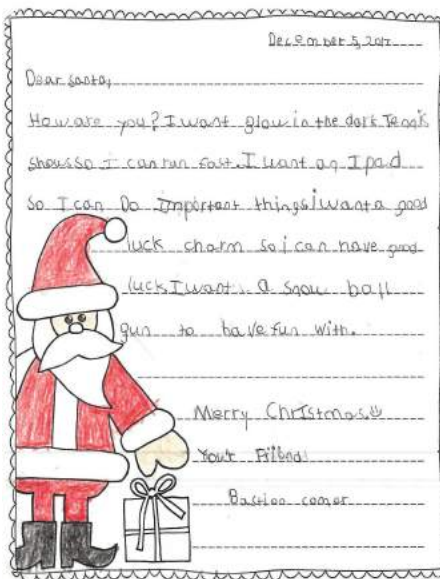 December 5, 2017
Dear Santa,
How are you? I want glow in the dark Tennis
shous so I can run fast. I want an Ipad
So I can Do Important things i want a good
luck charm so i can have good
luck I want a snow ball
gun to have fun with.
Merry Christmas
Your Friend
Bastion